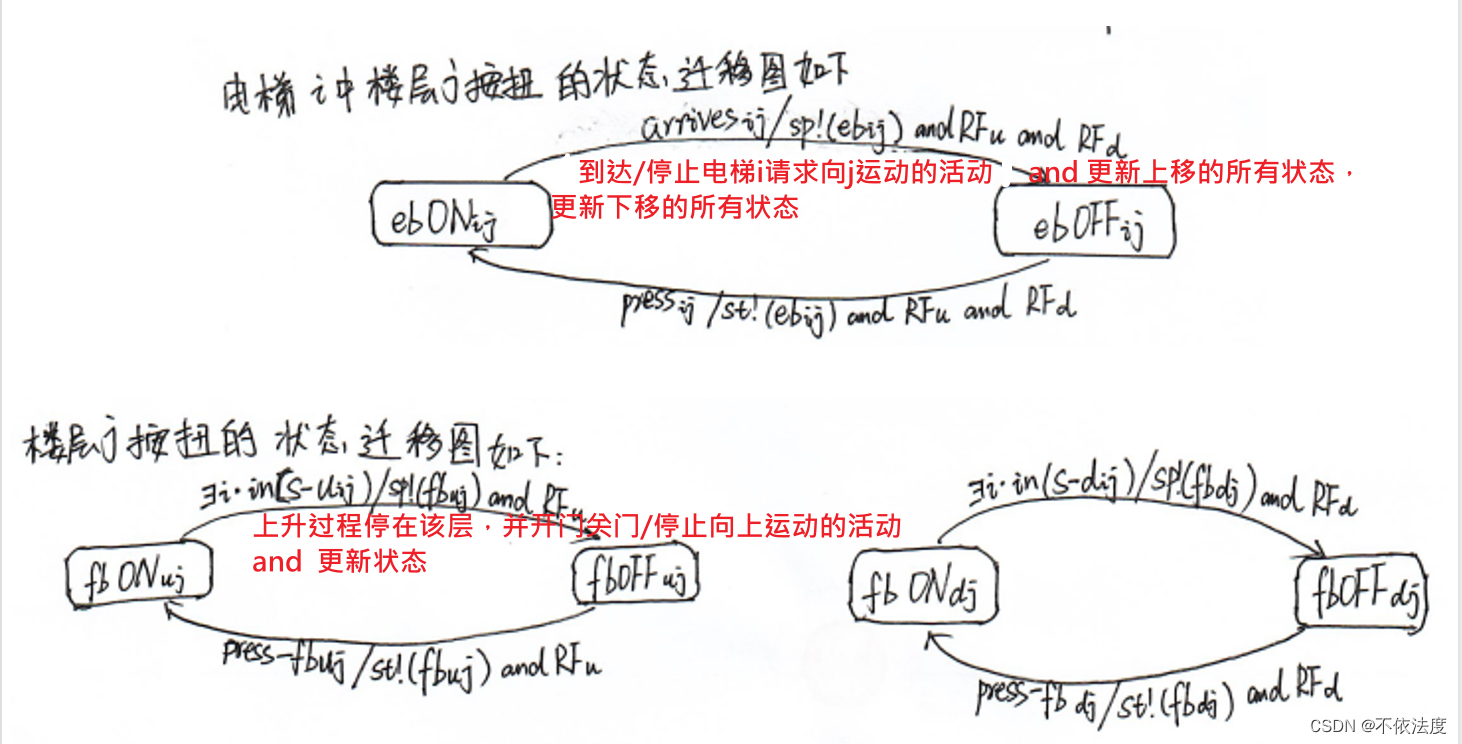 电梯i中楼层j按扭的状态迁移图如下
arrives ij/sp!(ebij) and RFu and RFd
到达/停止电梯i请求向j运动的活动 and 更新上移的所有状态，
更新下移的所有状态
ebONij
ebOFFij
press ij/st!(ebij) and RFu and RFd
楼层j按扭的状态迁移图如下:
∃i·in(S-uij)/sp!(fbuj) and RFu
∃i·in(s-dij)/sp!(fbdj) and RFd
上升过程停在该层，并开门关门/停止向上运动的活动
and 更新状态
fbONuj
fbOFFuj
fbONdj
fbOFFdj
press-fbuj/st!(fbuj) and RFu
press-fbdj/st!(fbdj) and RFd
CSDN @不依法度